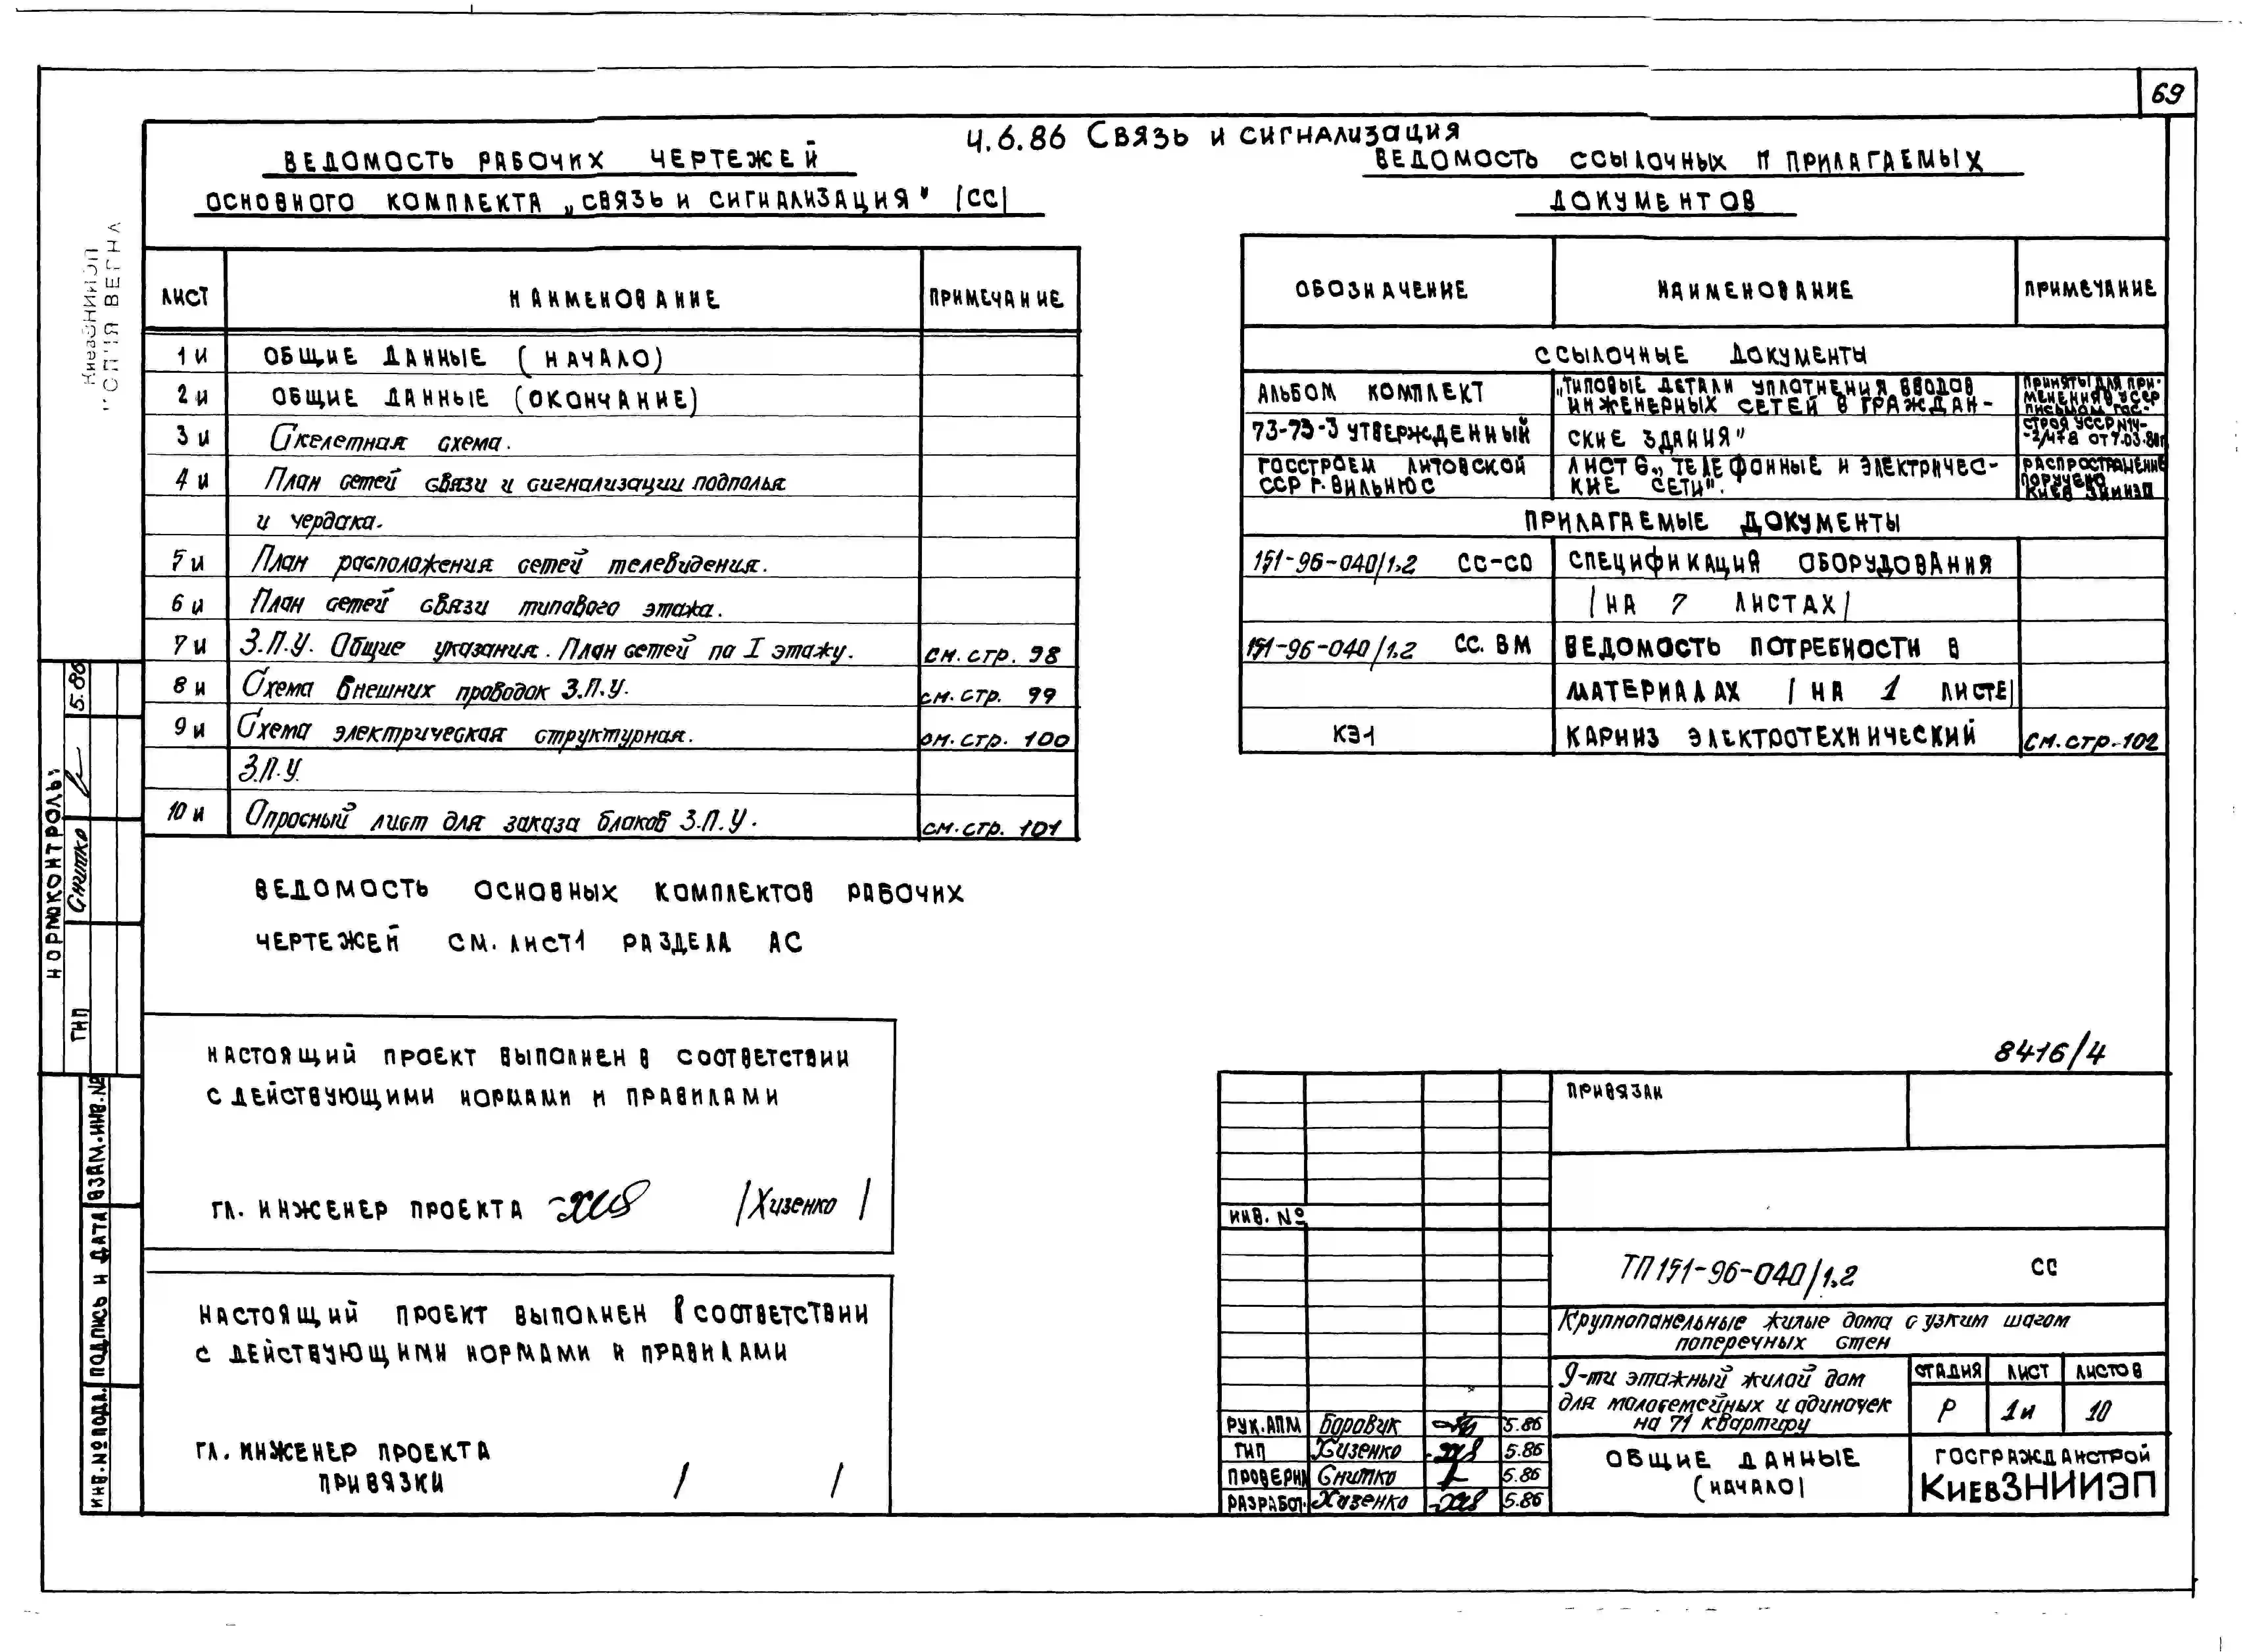 69
Ч.6.86 Связь и сигнализация
ВЕДОМОСТЬ РАБОЧИХ ЧЕРТЕЖЕЙ
ОСНОВНОГО КОМПЛЕКТА „СВЯЗЬ И СИГНАЛИЗАЦИЯ" (СС)
ЛИСТ НАИМЕНОВАНИЕ ПРИМЕЧАНИЕ
1и ОБЩИЕ ДАННЫЕ (НАЧАЛО)
2и ОБЩИЕ ДАННЫЕ (ОКОНЧАНИЕ)
3и Скелетная схема.
4и План сетей связи и сигнализации подполья
и чердака.
5и План расположения сетей телевидения.
6и План сетей связи типового этажа.
7и З.П.У. Общие указания. План сетей по I этажу. см. стр. 98
8и Схема внешних проводок З.П.У. см. стр. 99
9и Схема электрическая структурная. см. стр. 100
З.П.У.
10и Опросный лист для заказа блоков З.П.У. см. стр. 101
ВЕДОМОСТЬ ОСНОВНЫХ КОМПЛЕКТОВ РАБОЧИХ
ЧЕРТЕЖЕЙ СМ. ЛИСТ1 РАЗДЕЛА АС
НАСТОЯЩИЙ ПРОЕКТ ВЫПОЛНЕН В СООТВЕТСТВИИ
С ДЕЙСТВУЮЩИМИ НОРМАМИ И ПРАВИЛАМИ
ГЛ. ИНЖЕНЕР ПРОЕКТА /Хизенко /
НАСТОЯЩИЙ ПРОЕКТ ВЫПОЛНЕН В СООТВЕТСТВИИ
С ДЕЙСТВУЮЩИМИ НОРМАМИ И ПРАВИЛАМИ
ГЛ. ИНЖЕНЕР ПРОЕКТА
ПРИВЯЗКИ / /
ВЕДОМОСТЬ ССЫЛОЧНЫХ И ПРИЛАГАЕМЫХ
ДОКУМЕНТОВ
ОБОЗНАЧЕНИЕ НАИМЕНОВАНИЕ ПРИМЕЧАНИЕ
ССЫЛОЧНЫЕ ДОКУМЕНТЫ
АЛЬБОМ КОМПЛЕКТ
73-73-3 УТВЕРЖДЕННЫЙ
ГОССТРОЕМ ЛИТОВСКОЙ
ССР Г. ВИЛЬНЮС
„ТИПОВЫЕ ДЕТАЛИ УПЛОТНЕНИЯ ВВОДОВ
ИНЖЕНЕРНЫХ СЕТЕЙ В ГРАЖДАН-
СКИЕ ЗДАНИЯ"
ЛИСТ 6 „ТЕЛЕФОННЫЕ И ЭЛЕКТРИЧЕС-
КИЕ СЕТИ".
ПРИНЯТЫ ДЛЯ ПРИ-
МЕНЕНИЯ В УССР
ПИСЬМОМ ГОС-
СТРОЯ УССР №14-
-2/478 ОТ 7.03.80г
РАСПРОСТРАНЕНИЕ
ПОРУЧЕНО
КИЕВ ЗНИИЭП
ПРИЛАГАЕМЫЕ ДОКУМЕНТЫ
151-96-040/1.2 СС-СО СПЕЦИФИКАЦИЯ ОБОРУДОВАНИЯ
/НА 7 ЛИСТАХ/
151-96-040/1.2 СС. ВМ ВЕДОМОСТЬ ПОТРЕБНОСТИ В
МАТЕРИАЛАХ /НА 1 ЛИСТЕ/
КЭ-1 КАРНИЗ ЭЛЕКТРОТЕХНИЧЕСКИЙ СМ. СТР-102
8416/4
ПРИВЯЗАН
ИНВ. №
ТП 151-96-040/1.2 СС
Крупнопанельные жилые дома с узким шагом
поперечных стен
9-ти этажный жилой дом
для малосемейных и одиночек
на 71 квартиру
СТАДИЯ ЛИСТ ЛИСТОВ
Р 1и 10
РУК. АПМ Боровик 5.86
ГИП Хизенко 5.86
ПРОВЕРИЛ Снитко 5.86
РАЗРАБОТ. Хизенко 5.86
ОБЩИЕ ДАННЫЕ
(НАЧАЛО)
ГОСГРАЖДАНСТРОЙ
КиевЗНИИЭП
КиевЗНИИЭП
НОРМОКОНТРОЛЬ
ГИП Снитко 5.86
ВЗАМ. ИНВ. №
ПОДПИСЬ И ДАТА
ИНВ. № ПОДЛ.